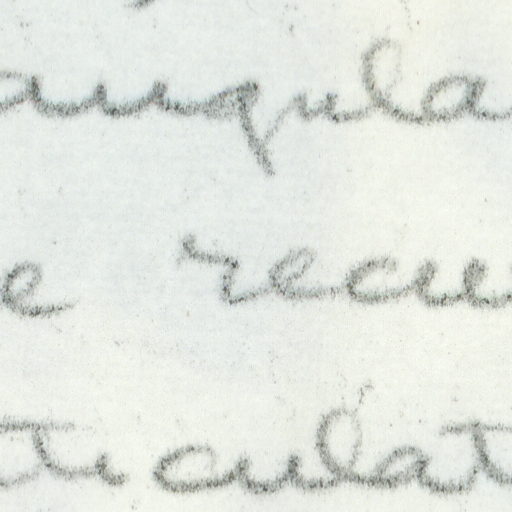 angula
e recu
ti culat